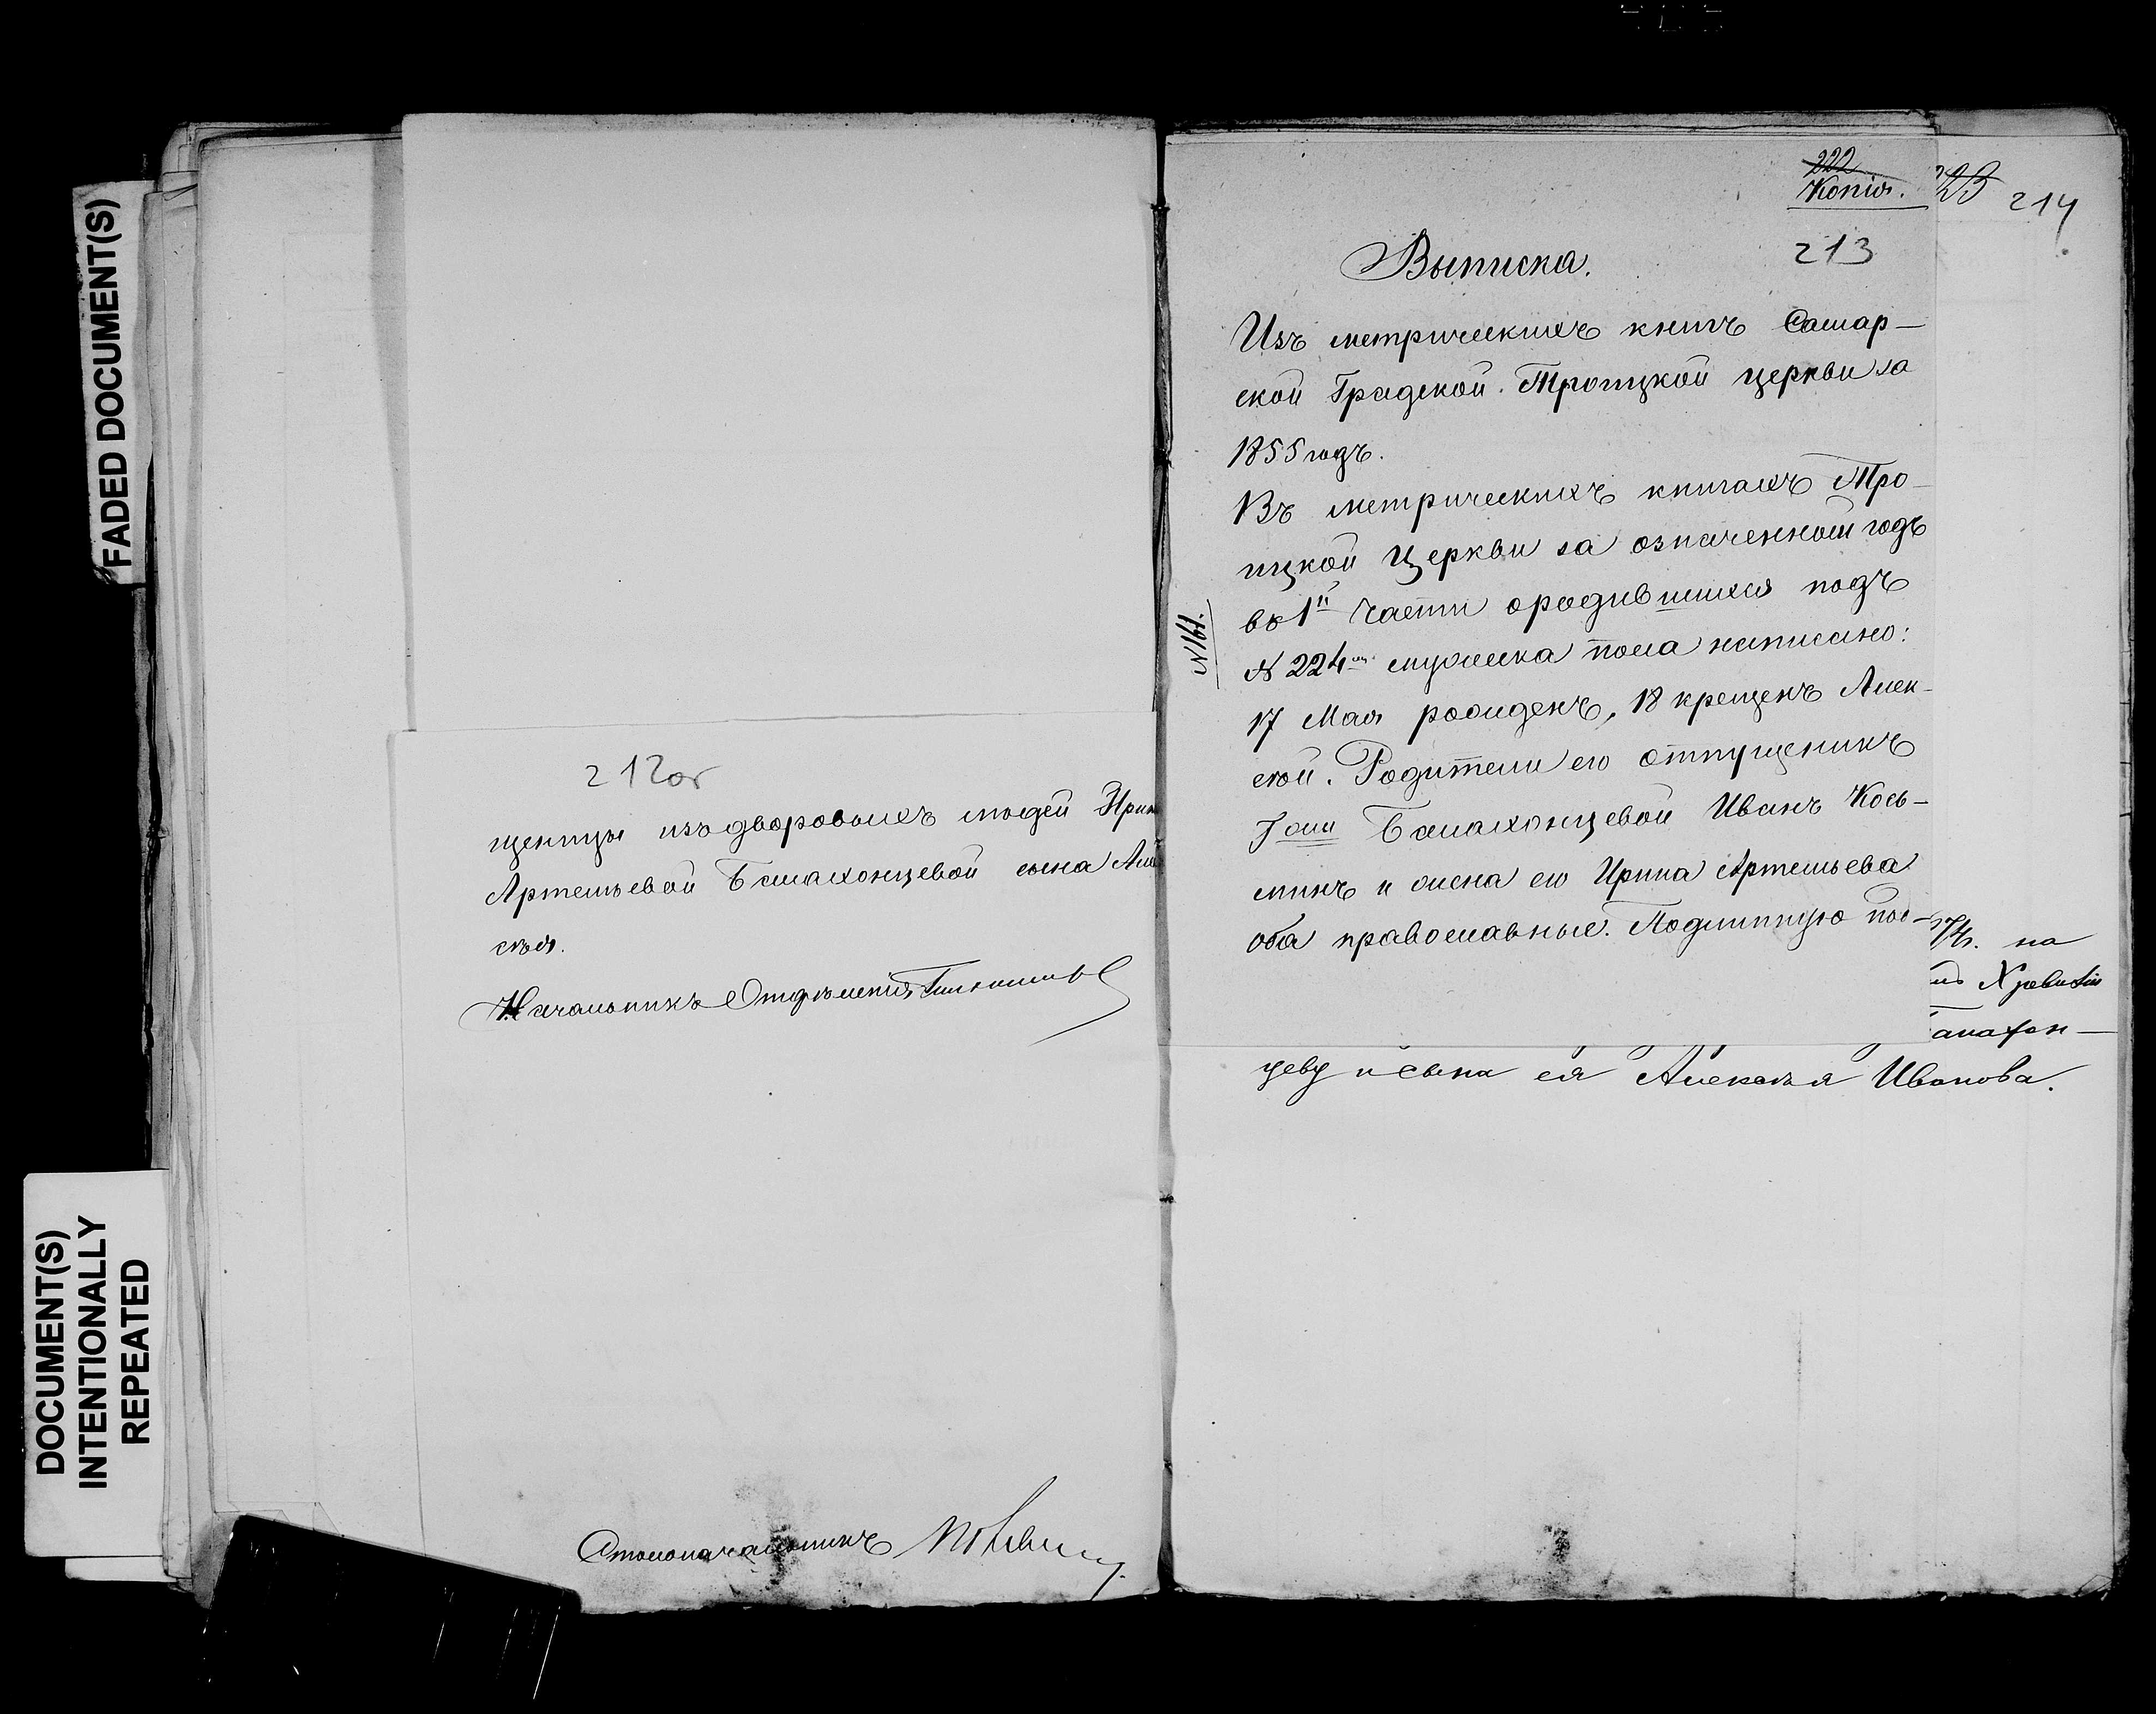 FADED DOCUMENT(S)
DOCUMENT(S)
INTENTIONALLY
REPEATED
212об
щенцы изъ дворовыхъ людей Ири
Артемьевой Балахонцевой сына Але
ксѣя.
Начальникъ Отдѣленія
Столоначальникъ
222
Копія.
213
214
Выписка.
Изъ метрическихъ книгъ Самар-
ской Градской Троицкой церкви за
1855 годъ.
Въ метрическихъ книгахъ Тро-
ицкой Церкви за означенной годъ
въ 1й части о родившихся подъ
№ 224 мужеска пола написано:
17 Мая рожденъ, 18 крещенъ Алек-
сѣй. Родители его отпущеникъ
Г-жи Балахонцевой Иванъ Кось-
минъ и жена его Ирина Артемьева
оба православные. Подлинную под-
№ 161.
на
алахон-
цеву и сына ея Алексѣя Иванова.